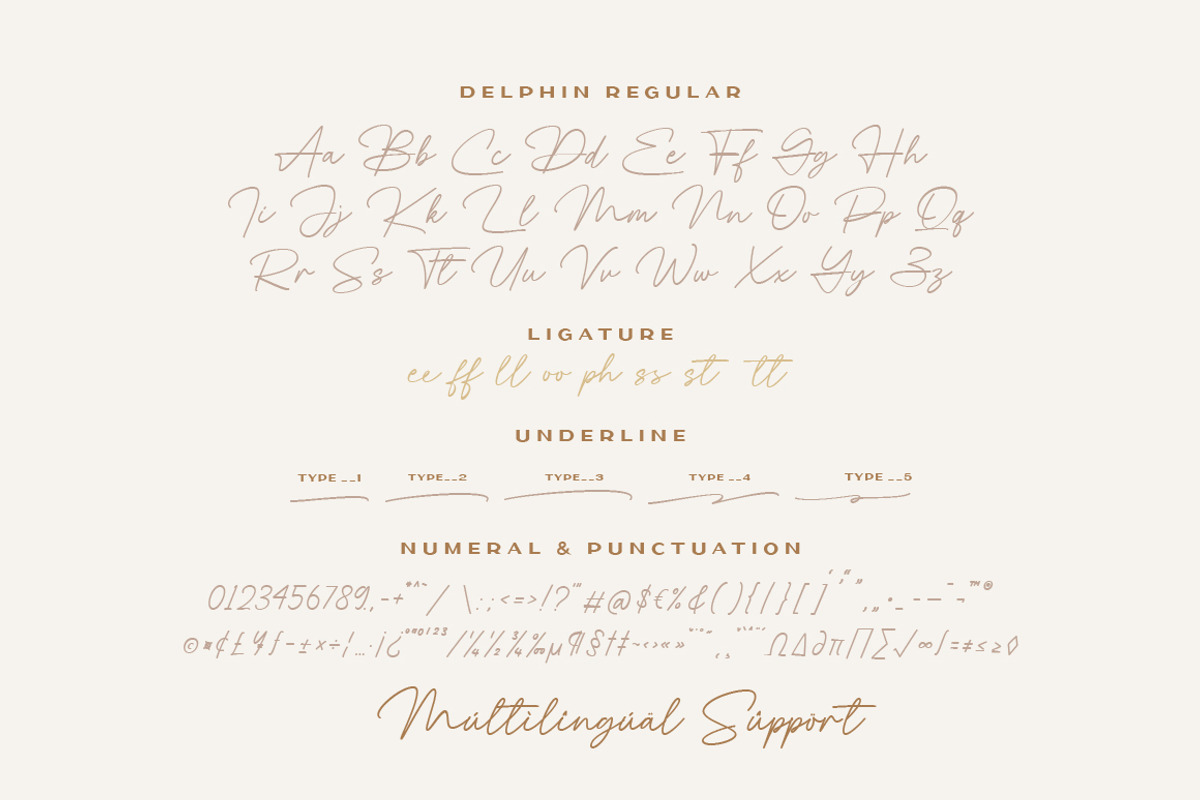 DELPHIN REGULAR
Aa Bb Cc Dd Ee Ff Gg Hh
Ii Jj Kk Ll Mm Nn Oo Pp Qq
Rr Ss Tt Uu Vv Ww Xx Yy Zz
LIGATURE
ee ff ll oo ph ss st tt
UNDERLINE
TYPE __1 TYPE__2 TYPE__3 TYPE __4 TYPE __5
NUMERAL & PUNCTUATION
0123456789.,-+*^~/ \:;<=>!?"'#@$€%&(){|}[]‘’“”‚„•_-—¯¬™®
©¤¢£¥ƒ–±×÷¦…·¡¿ºªº123/¼½¾‰µ¶§†‡~‹›«»¸ΩΔ∂π∏∑√∞∫=≠≤≥◊
Múltilîngúäl Sûppört